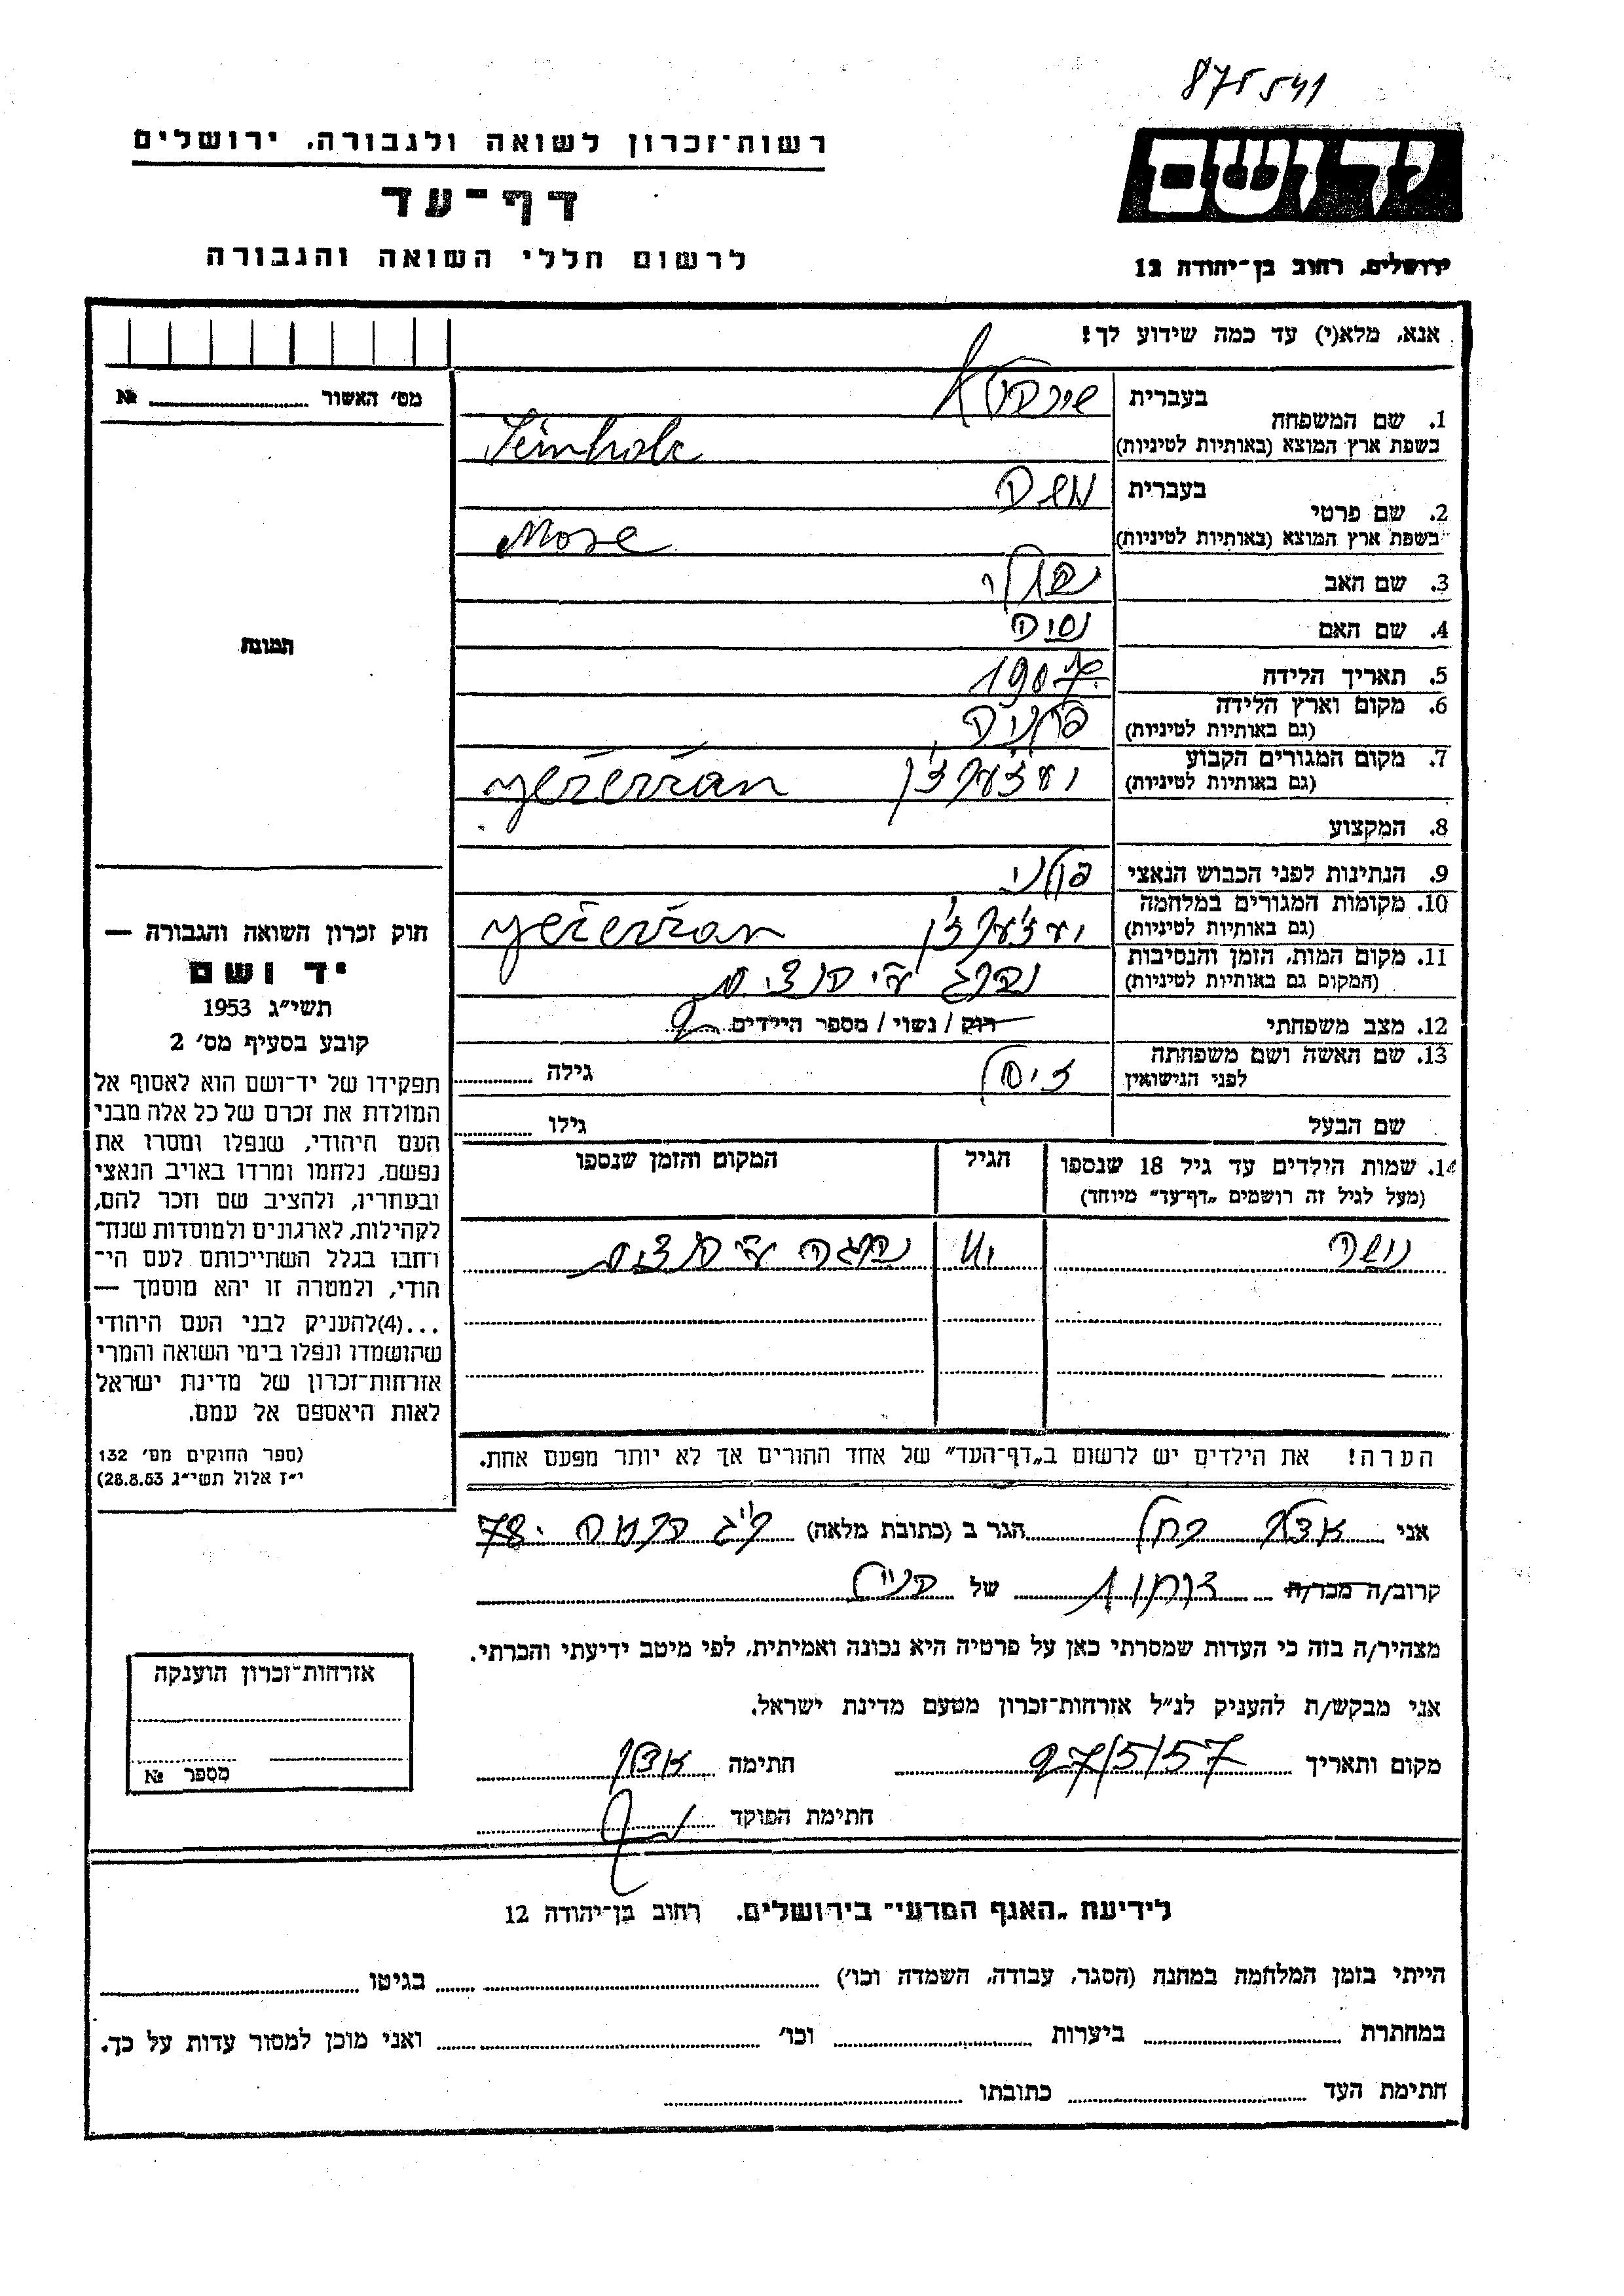 875541
רשות־זכרון לשואה ולגבורה. ירושלים
דף־עד
לרשום חללי השואה והגבורה
יד ושם
ירושלים, רחוב בן־יהודה 12
אנא, מלא(י) עד כמה שידוע לך!
מס׳ האשור № 
תמונה
חוק זכרון השואה והגבורה —
יד ושם
תשי״ג 1953
קובע בסעיף מס׳ 2
תפקידו של יד־ושם הוא לאסוף אל
המולדת את זכרם של כל אלה מבני
העם היהודי, שנפלו ומסרו את
נפשם, נלחמו ומרדו באויב הנאצי
ובעוזריו, ולהציב שם וזכר להם,
לקהילות, לארגונים ולמוסדות שנח־
רבו בגלל השתייכותם לעם הי־
הודי, ולמטרה זו יהא מוסמך —
...(4)להעניק לבני העם היהודי
שהושמדו ונפלו בימי השואה והמרי
אזרחות־זכרון של מדינת ישראל
לאות היאספם אל עמם.
(ספר החוקים מס׳ 132
י״ז אלול תשי״ג 28.8.53)
1. שם המשפחה
בעברית
בשפת ארץ המוצא (באותיות לטיניות)
2. שם פרטי
בעברית משה
בשפת ארץ המוצא (באותיות לטיניות) Mose
3. שם האב
4. שם האם
5. תאריך הלידה 1907
6. מקום וארץ הלידה
(גם באותיות לטיניות) פולניה
7. מקום המגורים הקבוע
(גם באותיות לטיניות) yežeržan
8. המקצוע
9. הנתינות לפני הכבוש הנאצי פולני
10. מקומות המגורים במלחמה
(גם באותיות לטיניות) yežeržan
11. מקום המות, הזמן והנסיבות
(המקום גם באותיות לטיניות) נהרג ע״י הנצים
12. מצב משפחתי רווק / נשוי / מספר הילדים
13. שם האשה ושם משפחתה
לפני הנישואין גילה
שם הבעל גילו
14. שמות הילדים עד גיל 18 שנספו
(מעל לגיל זה רושמים „דף־עד״ מיוחד)
הגיל
המקום והזמן שנספו
ע״י הנצים
הערה! את הילדים יש לרשום ב„דף־העד״ של אחד ההורים אך לא יותר מפעם אחת.
אני רחל הגר ב (כתובת מלאה) 78
קרוב/ה מכר/ה של
מצהיר/ה בזה כי העדות שמסרתי כאן על פרטיה היא נכונה ואמיתית, לפי מיטב ידיעתי והכרתי.
אני מבקש/ת להעניק לנ״ל אזרחות־זכרון מטעם מדינת ישראל.
מקום ותאריך 27/5/57 חתימה
חתימת הפוקד
אזרחות־זכרון הוענקה
מספר №
לידיעת „האגף המדעי״ בירושלים. רחוב בן־יהודה 12
הייתי בזמן המלחמה במחנה (הסגר, עבודה, השמדה וכו׳) בגיטו
במחתרת ביערות וכו׳ ואני מוכן למסור עדות על כך.
חתימת העד כתובתו